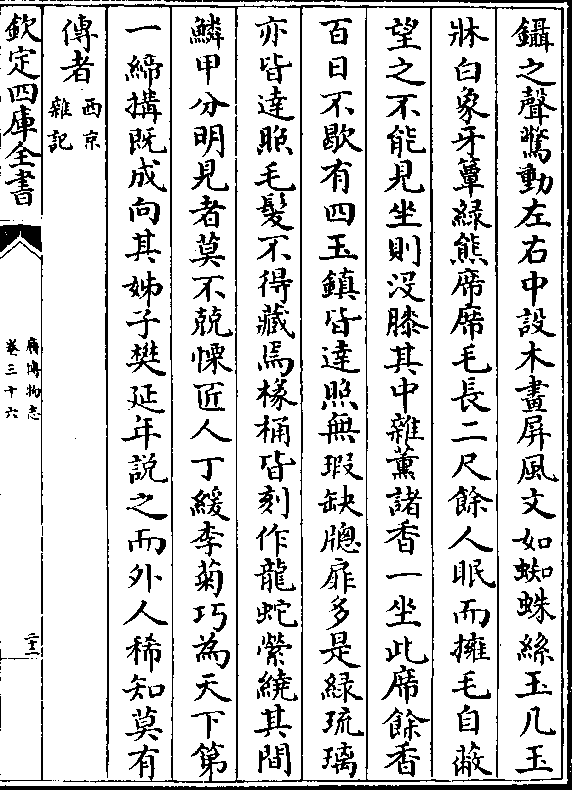 鑷之聲驚動左右中設木畫屏風文如蜘蛛絲玉几玉
牀白象牙簟緑熊席席毛長二尺餘人眠而擁毛自蔽
望之不能見坐則没膝其中雜薰諸香一坐此席餘香
百日不歇有四玉鎮皆達照無瑕缺牕扉多是緑琉璃
亦皆達照毛髮不得藏焉椽桷皆刻作龍蛇縈繞其間
鱗甲分明見者莫不兢慄匠人丁緩李菊巧為天下第
一締搆既成向其姊子樊延年説之而外人稀知莫有
傳者西京
雜記
欽定四庫全書
廣博物志
卷三十六
二十三